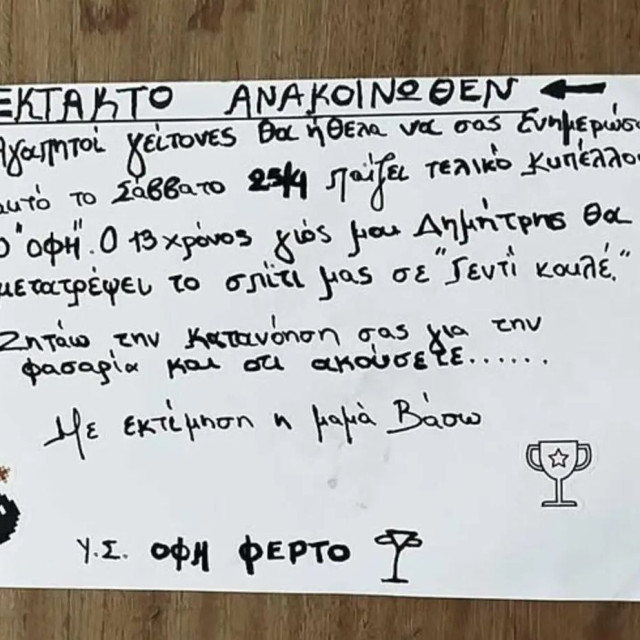 ΕΚΤΑΚΤΟ ΑΝΑΚΟΙΝΩΘΕΝ
Αγαπητοί γείτονες θα ήθελα να σας ενημερώσω
αυτό το Σάββατο 25/4 παίζει τελικό κυπέλλου
ο "ΟΦΗ". Ο 13χρόνος γιός μου Δημήτρης θα
μετατρέψει το σπίτι μας σε "Γεντί κουλέ."
Ζητάω την κατανόηση σας για την
φασαρία και ότι ακούσετε......
Με εκτίμηση η μαμά Βάσω
Υ.Σ. ΟΦΗ ΦΕΡΤΟ